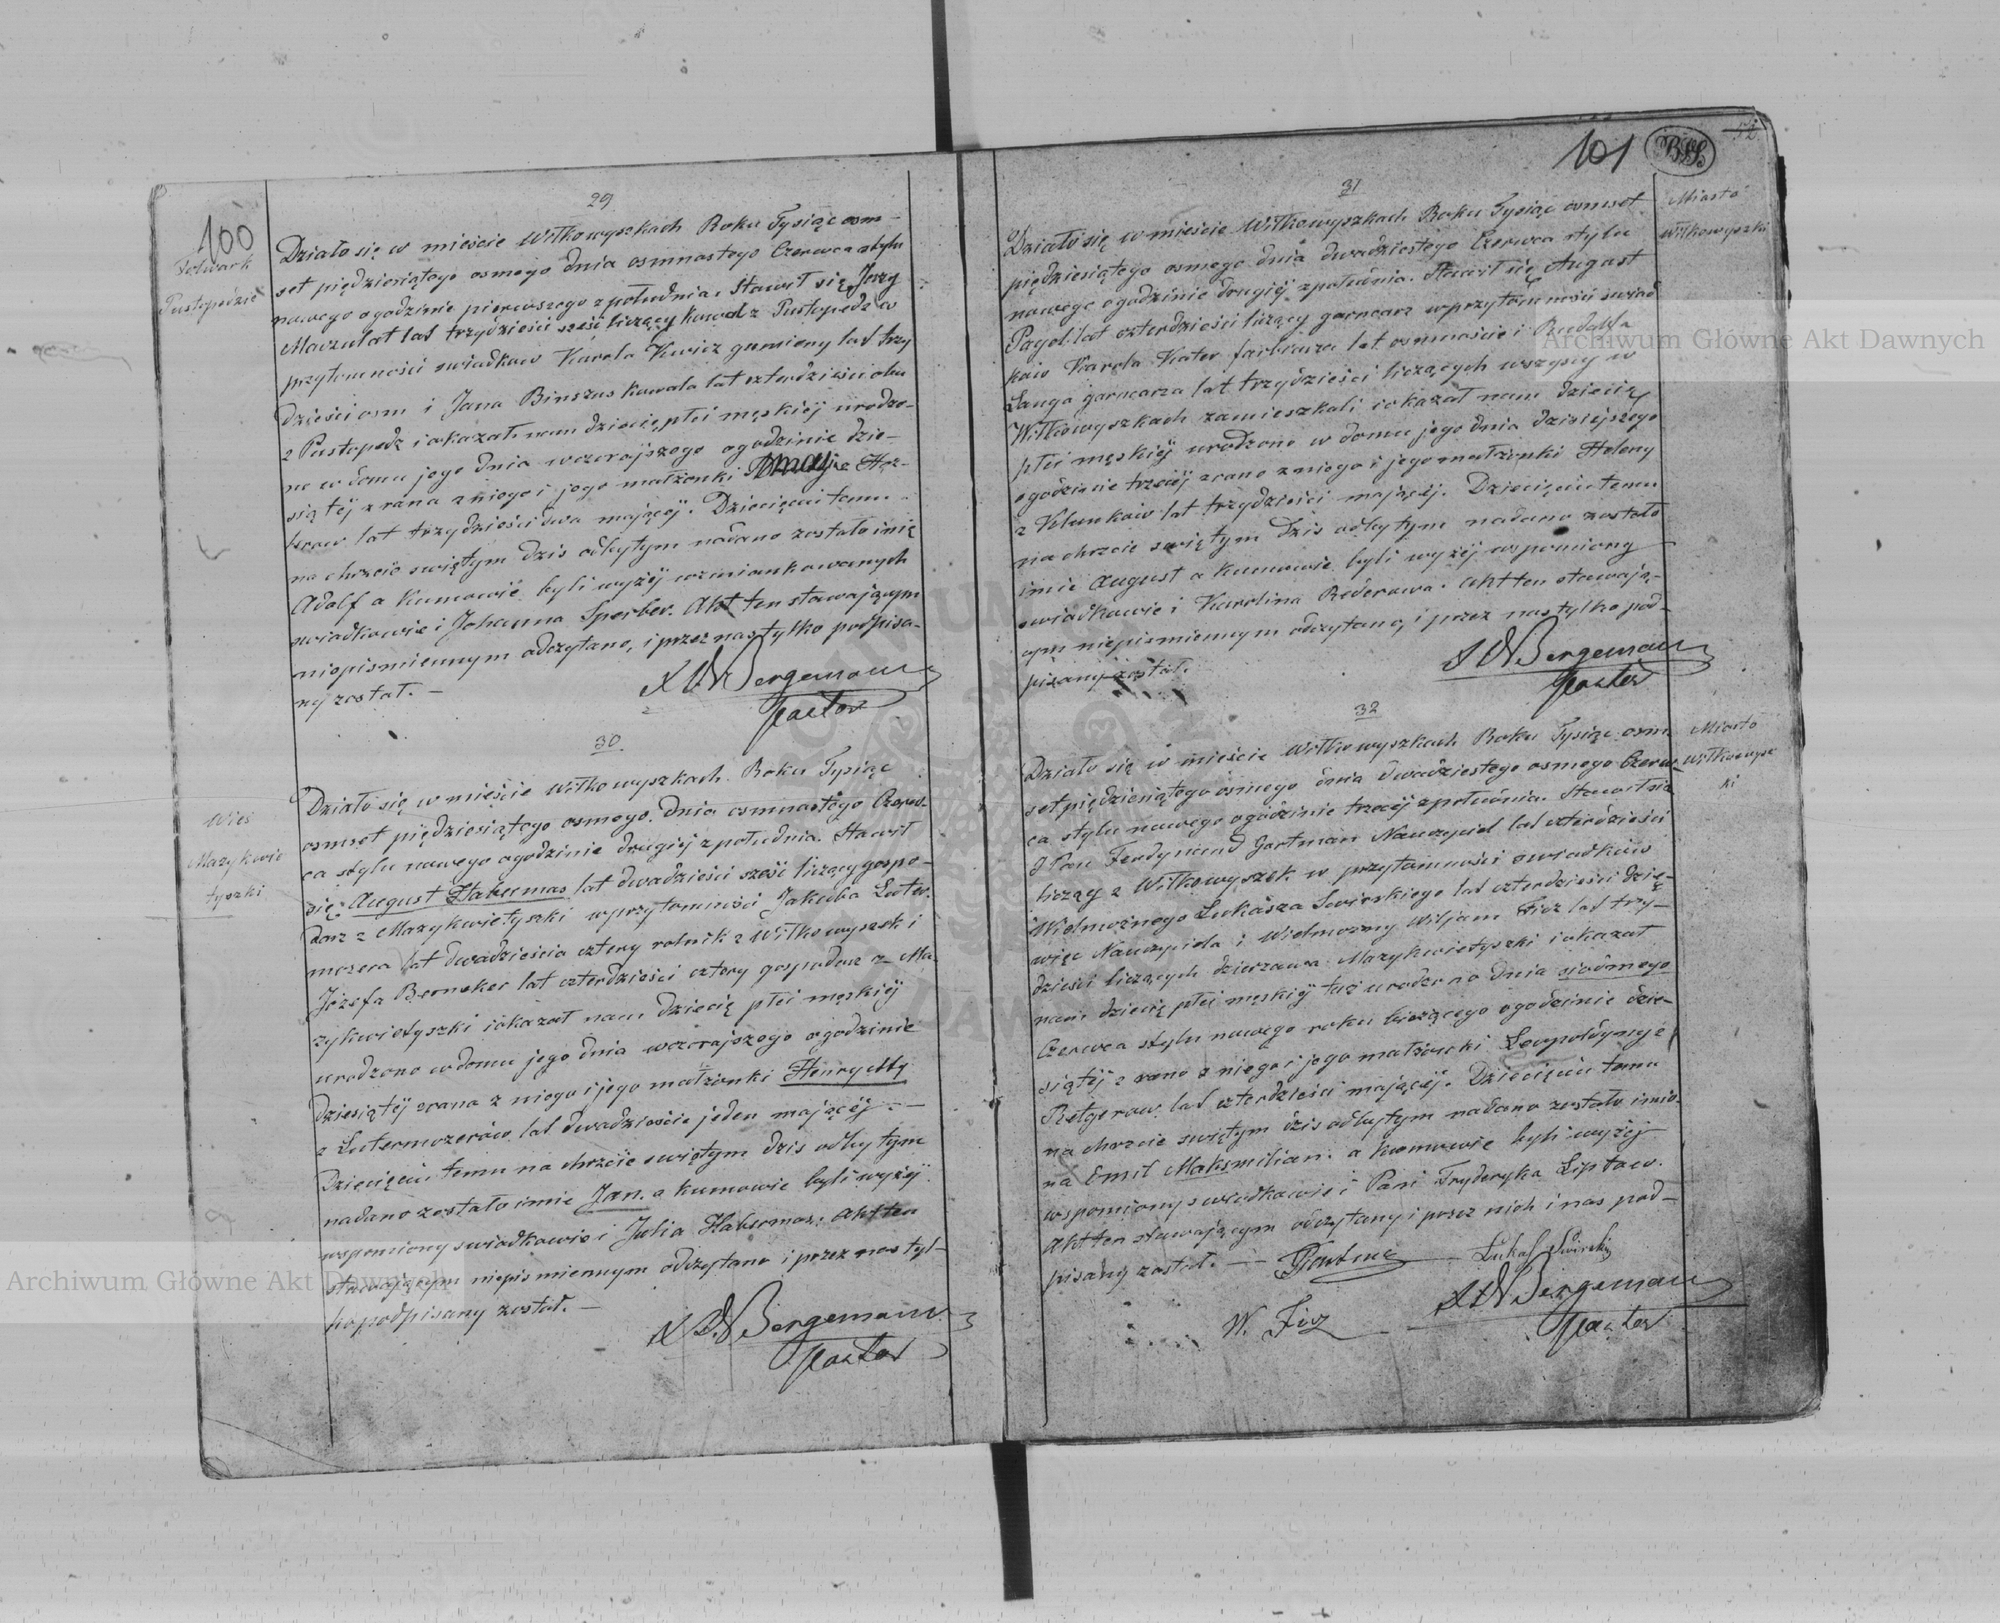 100
Folwark
Pustopedzie
29
Działo się w mieście Wiłkowyszkach Roku Tysiąc osm-
set piędziesiątego osmego dnia osmnastego Czerwca stylu
nowego o godzinie pierwszego z południa. Stawił się Jerzy
lat trzydzieści sześć liczący kowal z Pustopedz w
przytomności swiadków Karola Kwicz gumieny lat trzy
dzieści osm i Jana Binszus kowala lat czterdzieści obu
z Pustopedz i okazał nam dziecię płci męskiéj urodzo-
ne w domu jego dnia wczorajszego o godzinie dzie-
siątéj z rana z niego i jego małżonki
lat trzydzieści dwa mającéj. Dziecięciu temu
na chrzcie swiętym dzis odbytym nadano zostało imię
Adolf a Kumowie byli wyżéj wzmiankowanych
swiadkowie i Johanna Sperber. Akt ten stawającym
niepismiennym odczytano, i przez nas tylko podpisa-
ny został. –
Bergemann
Pastor
30.
Wieś
Mazykwie
tyszki
Działo się w mieście Wiłkowyszkach. Roku Tysiąc
osmset piędziesiątego osmego. dnia osmnastego Czerw-
ca stylu nowego o godzinie drugiéj z południa. Stawił
się August Habermas lat dwadzieści sześć liczący gospo-
darz z Mazykwietyszki w przytomności Jakuba Luter-
mozera lat dwadzieścia cztery rolnik z Wiłkowyszek i
Józefa Berneker lat czterdzieści cztery gospodarz z Ma-
zykwietyszki i okazał nam dziecię płci męskiéj
urodzone w domu jego dnia wczorajszego o godzinie
dziesiątéj z rana z niego i jego małżonki Henryetty
z Lutermozerów lat dwadzieście jeden mającéj. –
Dziecięciu temu na chrzcie swiętym dzis odbytym
nadano zostało imie Jan. a Kumowie byli wyżéj
wspomiony swiadkowie i Julia Habermas. Akt ten
stawającym niepismiennym odczytano i przez nas tyl-
ko podpisany został. –
Bergemann
Pastor
101
52
31
Miasto
Wiłkowyszki
Działo się w mieście Wiłkowyszkach Roku Tysiąc osmset
piędziesiątego osmego dnia dwadziestego Czerwca stylu
nowego o godzinie drugiéj z południa. Stawił się August
Pagel lat czterdzieści liczący garncarz w przytomności swiad
ków Karola Kater farbiarza lat osmnaście i Rudolfa
Langa garncarza lat trzydzieści liczących wszyscy w
Wiłkowyszkach zamieszkali i okazał nam dziecię
płci męskiéj urodzone w domu jego dnia dzisiejszego
o godzinie trzeciéj z rano z niego i jego małżonki Heleny
z Klunków lat trzydzieści mającéj. Dziecięciu temu
na chrzcie swiętym dzis odbytym nadano zostało
imie August a Kumowie byli wyżéj wspomiony
swiadkowie i Karolina Rederowa. Akt ten stawają-
cym niepismiennym odczytano, i przez nas tylko pod-
pisany został.
Bergemann
Pastor
32
Miasto
Wiłkowysz
ki
Działo się w mieście Wiłkowyszkach Roku Tysiąc osm-
set piędziesiątego osmego dnia dwadziestego osmego Czerw-
ca stylu nowego o godzinie trzeciéj z południa. Stawił się
J Pan Ferdynand Gartman Nauczyciel lat czterdzieści
liczący z Wiłkowyszek w przytomności swiadków
Wielmożnego Łukasza Swirskiego lat czterdzieści dzie-
więc Nauczyciela i Wielmożny Wiljam Ficz lat trzy-
dzieści liczących dzierzawca Mazykwietyszki i okazał
nam dziecię płci męskiéj tu urodzono dnia siódmego
Czerwca stylu nowego roku bieżącego o godzinie dzie-
siątéj z rano z niego i jego małżonki Leopoldyny z
Retgerow lat czterdzieści mającéj. Dziecięciu temu
na chrzcie swiętym dzis odbytym nadano zostało imio-
na Emil Maksmilian. a kumowie byli wyżéj
wspomiony swiadkowie i Pani Fryderyka Liptow.
Akt ten stawającym odczytany i przez nich i nas pod-
pisany został. –
Łukasz Swirski
W. Ficz
Bergemann
Pastor
Archiwum Główne Akt Dawnych
Archiwum Główne Akt Dawnych